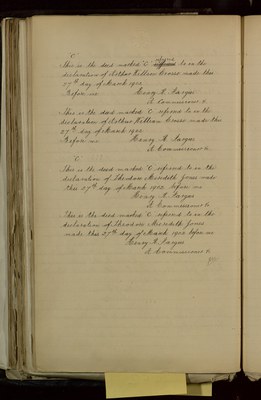 "C"
This is the deed marked "C" referred to in the
declaration of Arthur William made this
27th day of March 1902
Before me
Henry F.
A Commissioner &
This is the deed marked "C" referred to in the
declaration of Arthur William made this
27th day of March 1902
Before me Henry F.
A Commissioner &
"C"
This is the deed marked "C" referred to in the
declaration of Theodore Meredith Jones made
this 27th day of March 1902 before me
Henry F.
A Commissioner &
This is the deed marked "C" referred to in the
declaration of Theodore Meredith Jones
made this 27th day of March 1902 before me
Henry F.
A Commissioner &